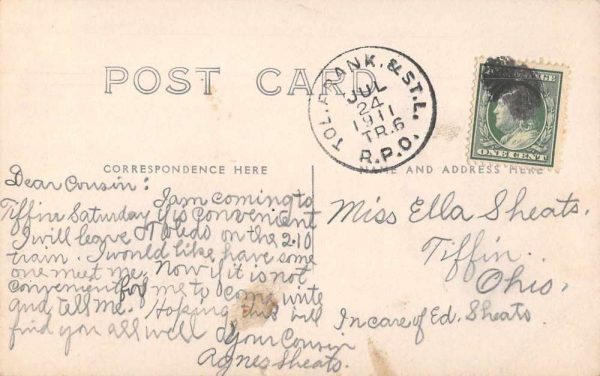 POST CARD
TOL. FRANK. & ST. L.
JUL
24
1911
TR.6
R.P.O.
POSTAGE
ONE CENT
CORRESPONDENCE HERE
NAME AND ADDRESS HERE
Dear Cousin:
I am coming to
Tiffin Saturday if is convenient
I will leave Toledo on the 2.10
train. I would like have some
one meet me. Now if it is not
convenient for me to come write
and tell me. Hoping this will
find you all well
Your Cousin
Agnes Sheats.
Miss Ella Sheats.
Tiffin..
Ohio.
In care of Ed. Sheats